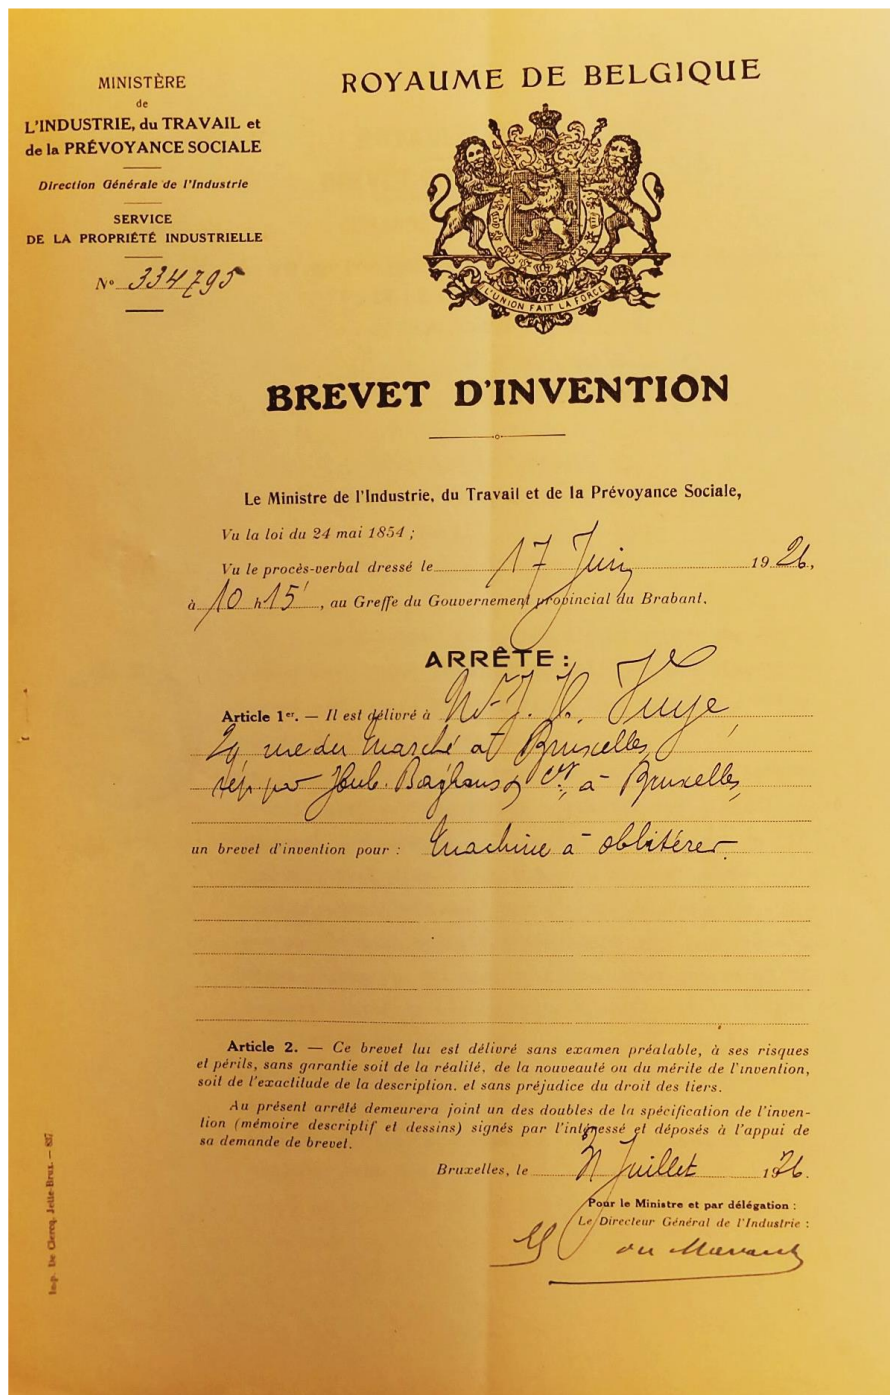 MINISTÈRE
de
L'INDUSTRIE, du TRAVAIL et
de la PRÉVOYANCE SOCIALE
Direction Générale de l'Industrie
SERVICE
DE LA PROPRIÉTÉ INDUSTRIELLE
N° 334795
ROYAUME DE BELGIQUE
L'UNION FAIT LA FORCE
BREVET D'INVENTION
Le Ministre de l'Industrie, du Travail et de la Prévoyance Sociale,
Vu la loi du 24 mai 1854 ;
Vu le procès-verbal dressé le 17 Juin 1926,
à 10 h 15', au Greffe du Gouvernement provincial du Brabant.
ARRÊTE :
Article 1er. — Il est délivré à Mr J. H.
29 rue du Marché at Bruxelles,
rép. par à Bruxelles,
un brevet d'invention pour : Machine à oblitérer.
Article 2. — Ce brevet lui est délivré sans examen préalable, à ses risques
et périls, sans garantie soit de la réalité, de la nouveauté ou du mérite de l'invention,
soit de l'exactitude de la description, et sans préjudice du droit des tiers.
Au présent arrêté demeurera joint un des doubles de la spécification de l'inven-
tion (mémoire descriptif et dessins) signés par l'intéressé et déposés à l'appui de
sa demande de brevet.
Bruxelles, le Juillet 1926.
Pour le Ministre et par délégation :
Le Directeur Général de l'Industrie :
Imp. De Clercq, Jette-Brux. — 837